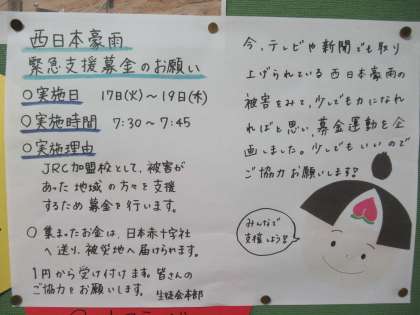 西日本豪雨
緊急支援募金のお願い
○実施日 17日(火)～19日(木)
○実施時間 7:30～7:45
○実施理由
JRC加盟校として、被害が
あった地域の方々を支援
するため募金を行います。
○集まったお金は、日本赤十字社
へ送り、被災地へ届けられます。
1円から受け付けます。皆さんの
ご協力をお願いします。 生徒会本部
今、テレビや新聞でも取り
上げられている西日本豪雨の
被害をみて、少しでも力になれ
ればと思い、募金運動を企
画しました。少しでもいいので
ご協力お願いします!!
みんなで
支援しよう!!